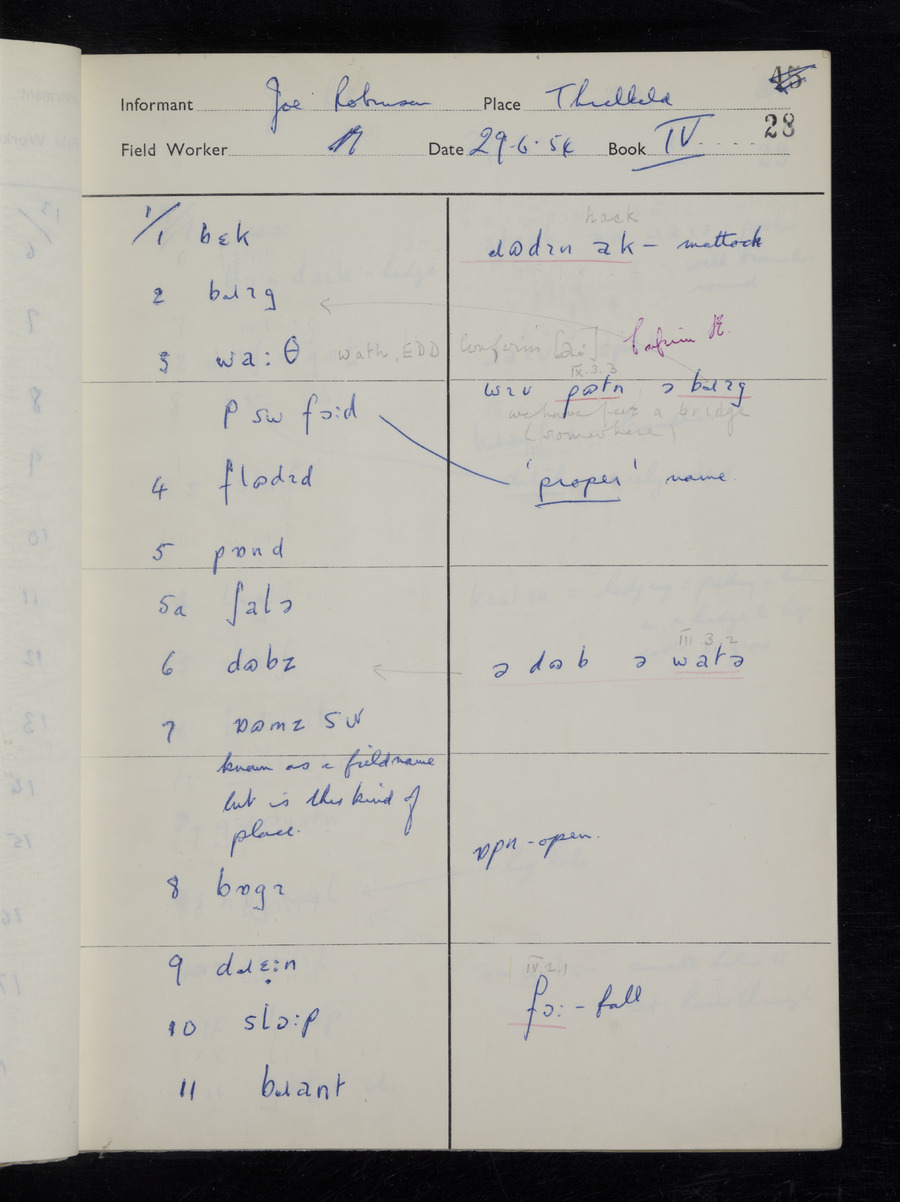 45
Informant Joe Robinson Place Threlkeld
28
Field Worker Date 29.6.54 Book IV
1/1 bɛk
hack
ak – mattock
2 bɹɪg
3 wa:θ
wath, EDD
Confirm
IX.3.3
ə bɹɪg
we have put a bridge
(somewhere)
fɔ:d
4 flɷdɪd
'proper' name
5 pɒnd
5a ʃalə
III.3.2
6 dɷbz
ə dɷb ə watə
7
known as a fieldname
but is this kind of
place.
ɒpn – open.
8 bɒgɪ
9 dɹɛ:n
IV.2.1
fɔ: – fall
10 slɔ:p
11 bɹant